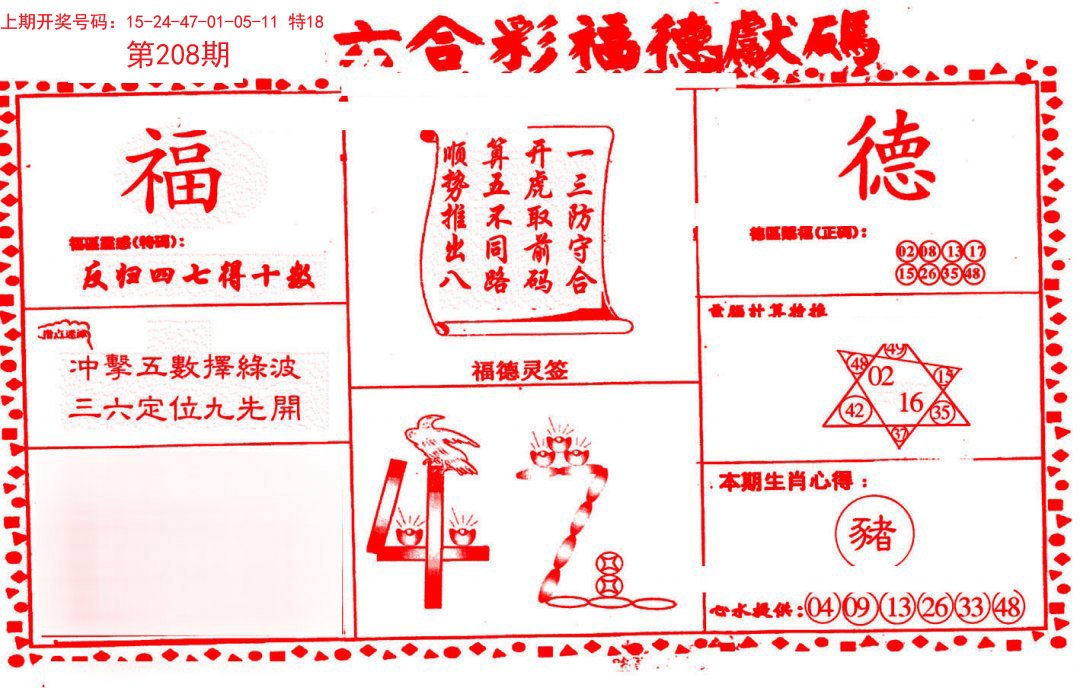 上期开奖号码：15-24-47-01-05-11 特18
第208期
六合彩福德獻碼
福
福區靈感(特碼)：
反归四七得十数
指点迷津
冲擊五數擇綠波
三六定位九先開
一三防守合
开虎取前码
算五不同路
顺势推出八
福德灵签
42
德
德區賜福(正碼)：
02 08 13 17
15 26 35 48
電腦計算搶推
49
48 02 15
42 16 35
37
本期生肖心得：
豬
心水提供：04 09 13 26 33 48